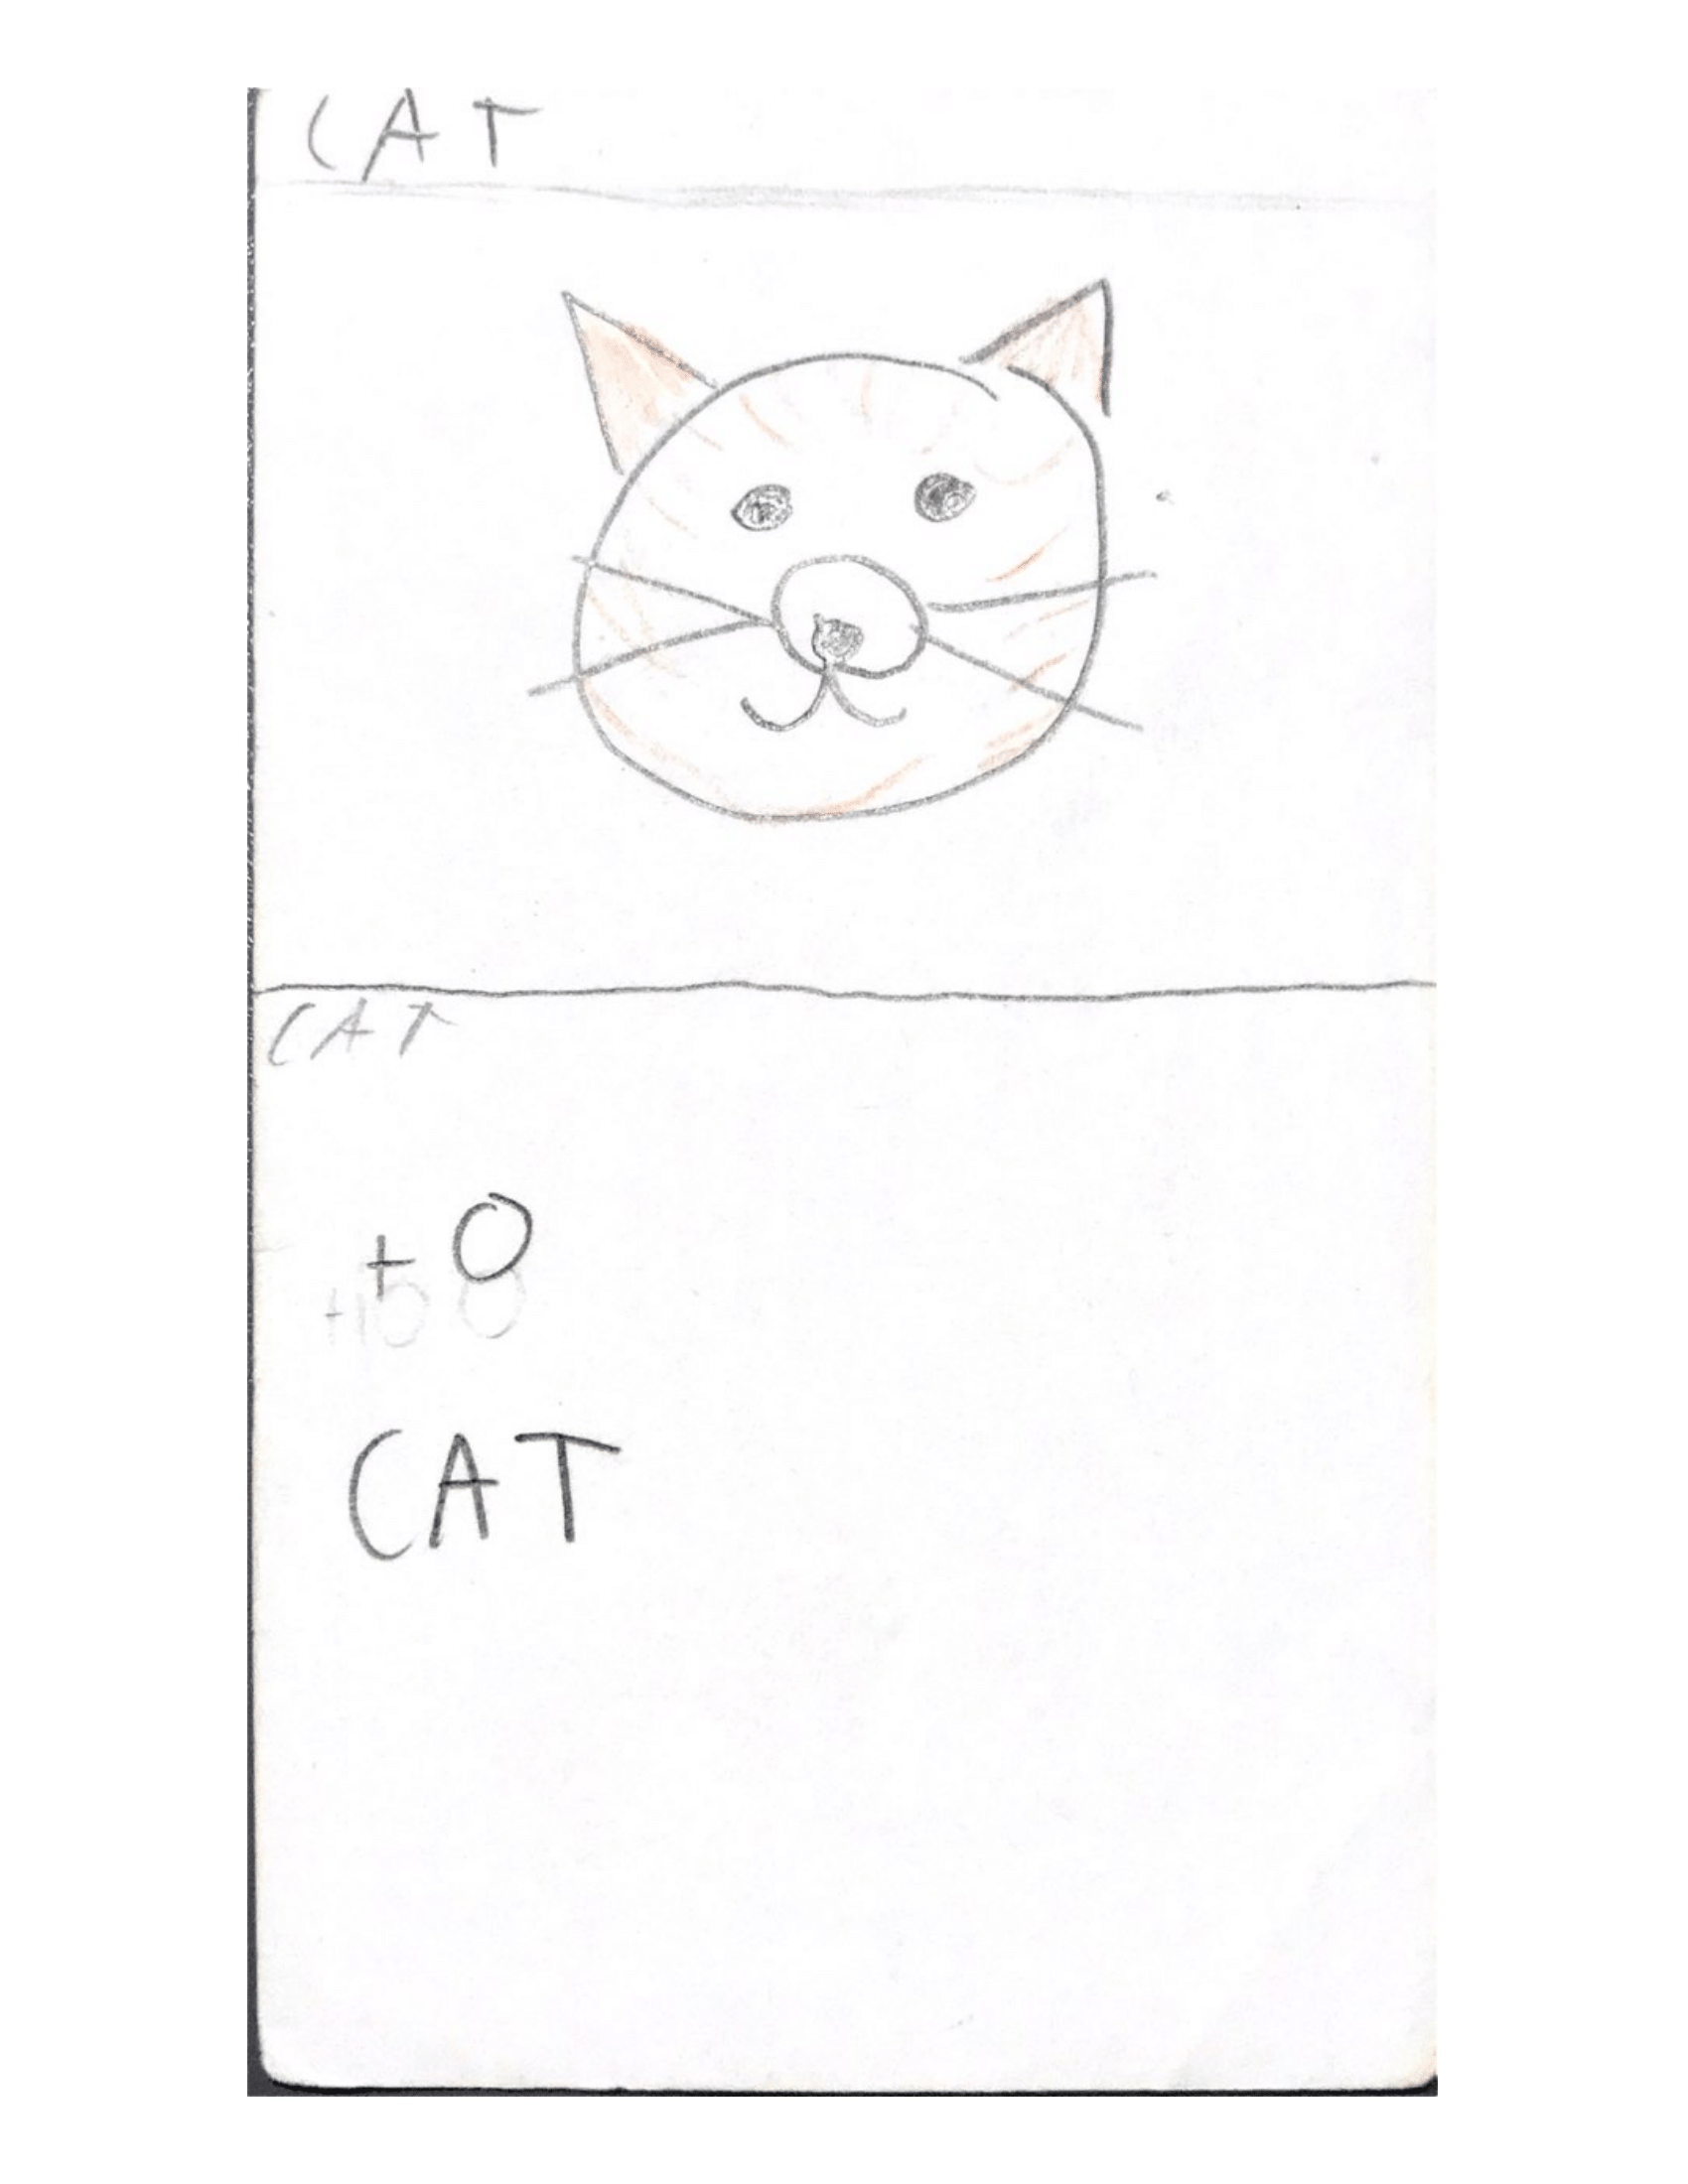 CAT
CAT
+0
CAT